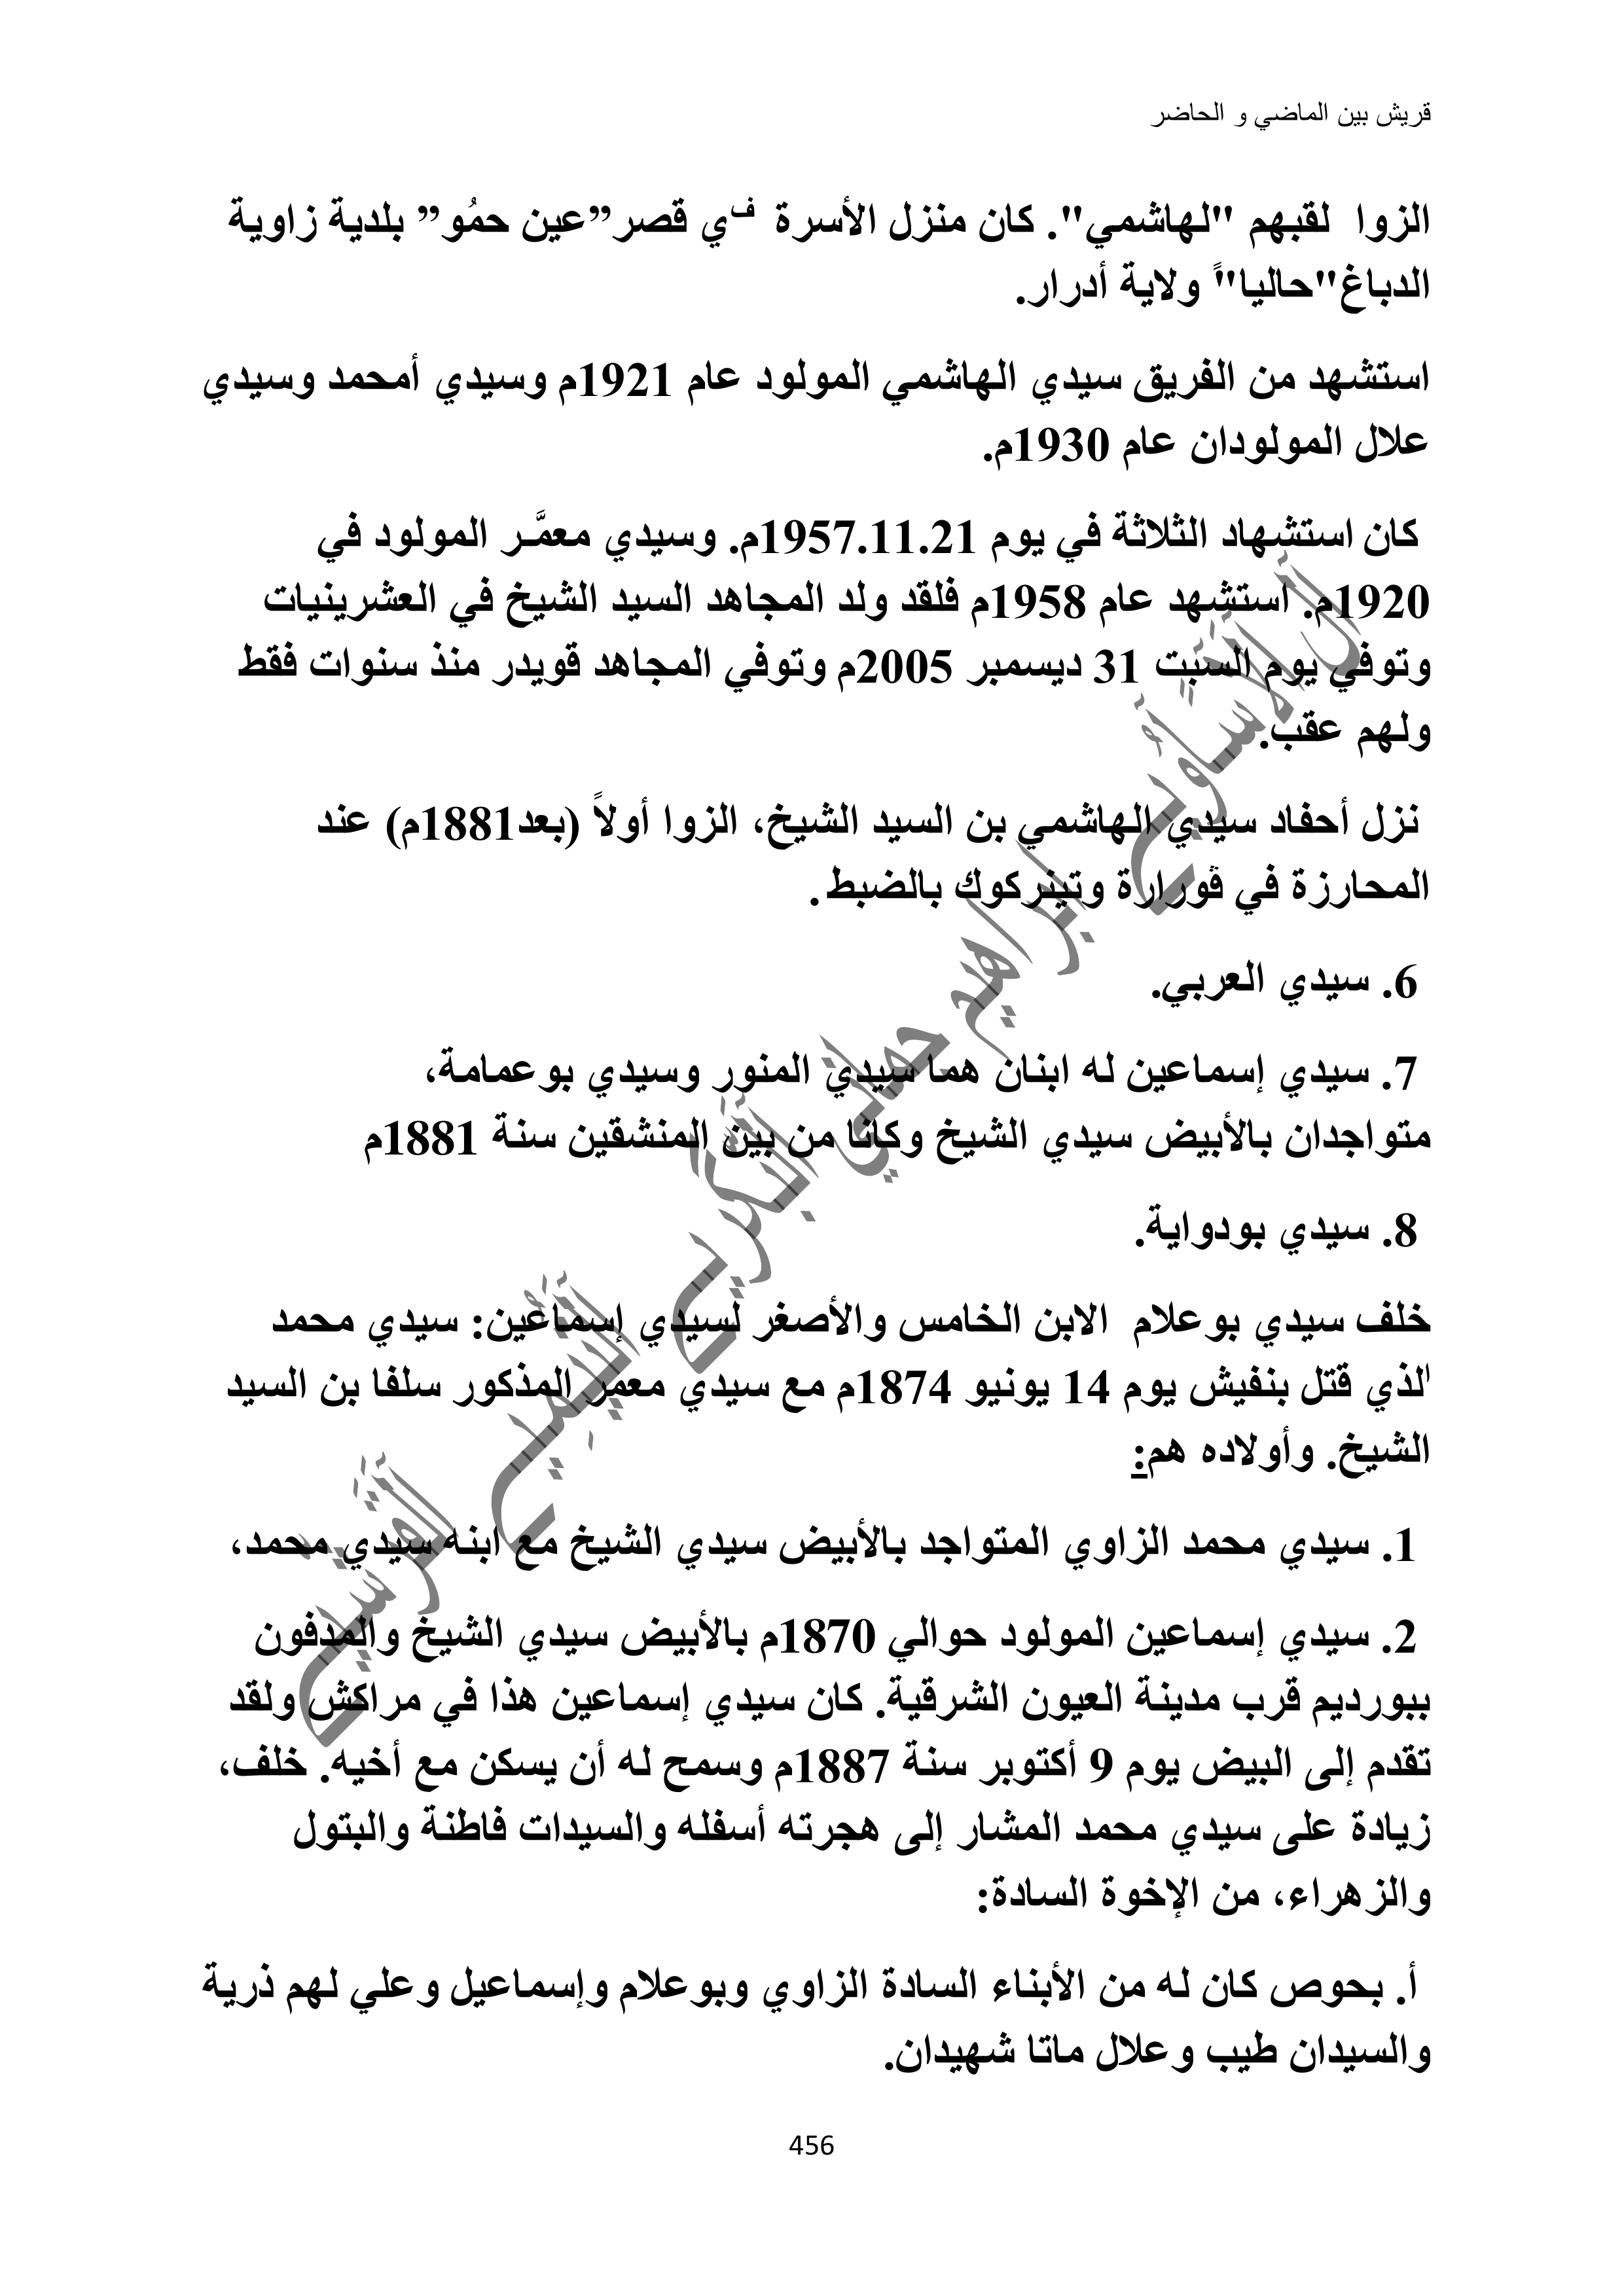 قريش بين الماضي و الحاضر
الزوا لقبهم "لهاشمي". كان منزل الأسرة في قصر”عين حمُو” بلدية زاوية
الدباغ"حاليا"ً ولاية أدرار.
استشهد من الفريق سيدي الهاشمي المولود عام 1921م وسيدي أمحمد وسيدي
علال المولودان عام 1930م.
كان استشهاد الثلاثة في يوم 1957.11.21م. وسيدي معمَّـر المولود في
1920م. استشهد عام 1958م فلقد ولد المجاهد السيد الشيخ في العشرينيات
وتوفي يوم السبت 31 ديسمبر 2005م وتوفي المجاهد قويدر منذ سنوات فقط
ولهم عقب.
نزل أحفاد سيدي الهاشمي بن السيد الشيخ، الزوا أولاً (بعد1881م) عند
المحارزة في ڨورارة وتينركوك بالضبط.
6. سيدي العربي.
7. سيدي إسماعين له ابنان هما سيدي المنور وسيدي بوعمامة،
متواجدان بالأبيض سيدي الشيخ وكانا من بين المنشقين سنة 1881م
8. سيدي بودواية.
خلف سيدي بوعلام الابن الخامس والأصغر لسيدي إسماعين: سيدي محمد
الذي قتل بنفيش يوم 14 يونيو 1874م مع سيدي معمر المذكور سلفا بن السيد
الشيخ. وأولاده هم:
1. سيدي محمد الزاوي المتواجد بالأبيض سيدي الشيخ مع ابنه سيدي محمد،
2. سيدي إسماعين المولود حوالي 1870م بالأبيض سيدي الشيخ والمدفون
ببورديم قرب مدينة العيون الشرقية. كان سيدي إسماعين هذا في مراكش ولقد
تقدم إلى البيض يوم 9 أكتوبر سنة 1887م وسمح له أن يسكن مع أخيه. خلف،
زيادة على سيدي محمد المشار إلى هجرته أسفله والسيدات فاطنة والبتول
والزهراء، من الإخوة السادة:
أ. بحوص كان له من الأبناء السادة الزاوي وبوعلام وإسماعيل وعلي لهم ذرية
والسيدان طيب وعلال ماتا شهيدان.
456